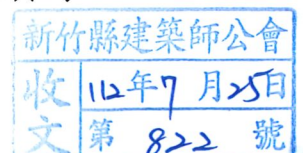 新竹縣建築師公會
收文
112年7月25日
第822號